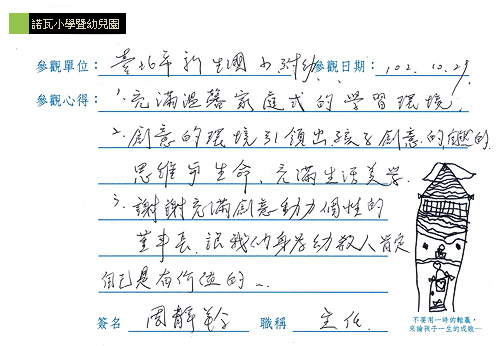 諾瓦小學暨幼兒園
參觀單位：臺北市新生國小附幼 參觀日期：102.10.29
參觀心得：1.充滿溫馨家庭式的學習環境.
2.創意的環境引領出孩子創意的自然的
思維與生命、充滿生活美學.
3.謝謝充滿創意動力個性的
董事長.讓我們身為幼教人肯定
自己是有價值的…
簽名 周靜 職稱 主任.
不要用一時的輸贏,
來論孩子一生的成敗…